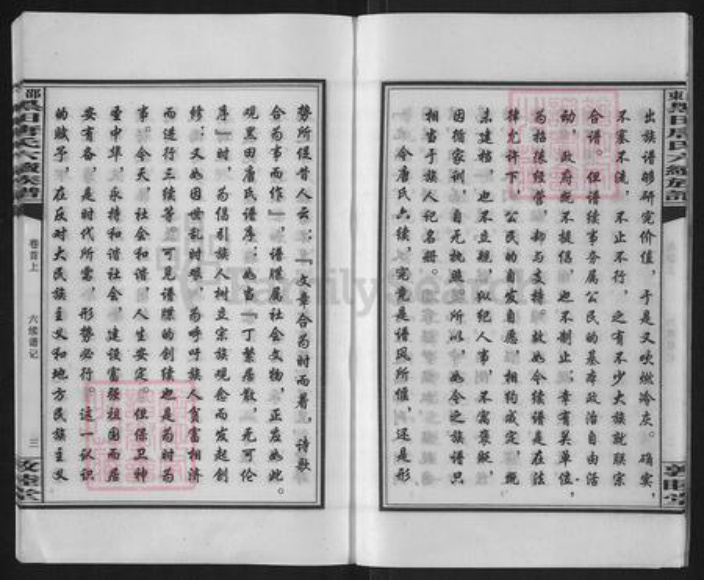 出族谱够研究价值，于是又吹燃冷灰。确实，
不塞不流，不止不行，之有不少大族就联宗
合谱。但谱续事务属公民的基本政治自由活
动，政府既不提倡，也不制止；幸有关单位，
为搭缘经营，却与支持。故如今续谱是在法
律允许下，公民的自发自愿，相约成定，既
未建档，也不立规，拟纪人事，不寓褒贬，
因循家训，自无执照。所以，如今之族谱只
相当于族人记名册。
今唐氏六续，究竟是谱风所催，还是形
势所促昔人云：『文章合为时而著，诗歌
合为事而作』，谱牒属社会文物，正应如此。
观黑田唐氏谱序；如当『丁繁居散，无可伦
序』时，为倡引族人树立宗族观念而发起创
修；又如因世乱时艰，为呼吁族人贫富相济
而进行三续等，可见谱牒的创续也是为时为
事。今天，社会和谐，人生安定。但保卫神
圣中华，永持和谐社会，建设富强祖国而居
安有备，是时代所需，形势必行。这一认识
的赋予，在反对大民族主义和地方民族主义
卷首上
六续谱记
三
FamilySearch